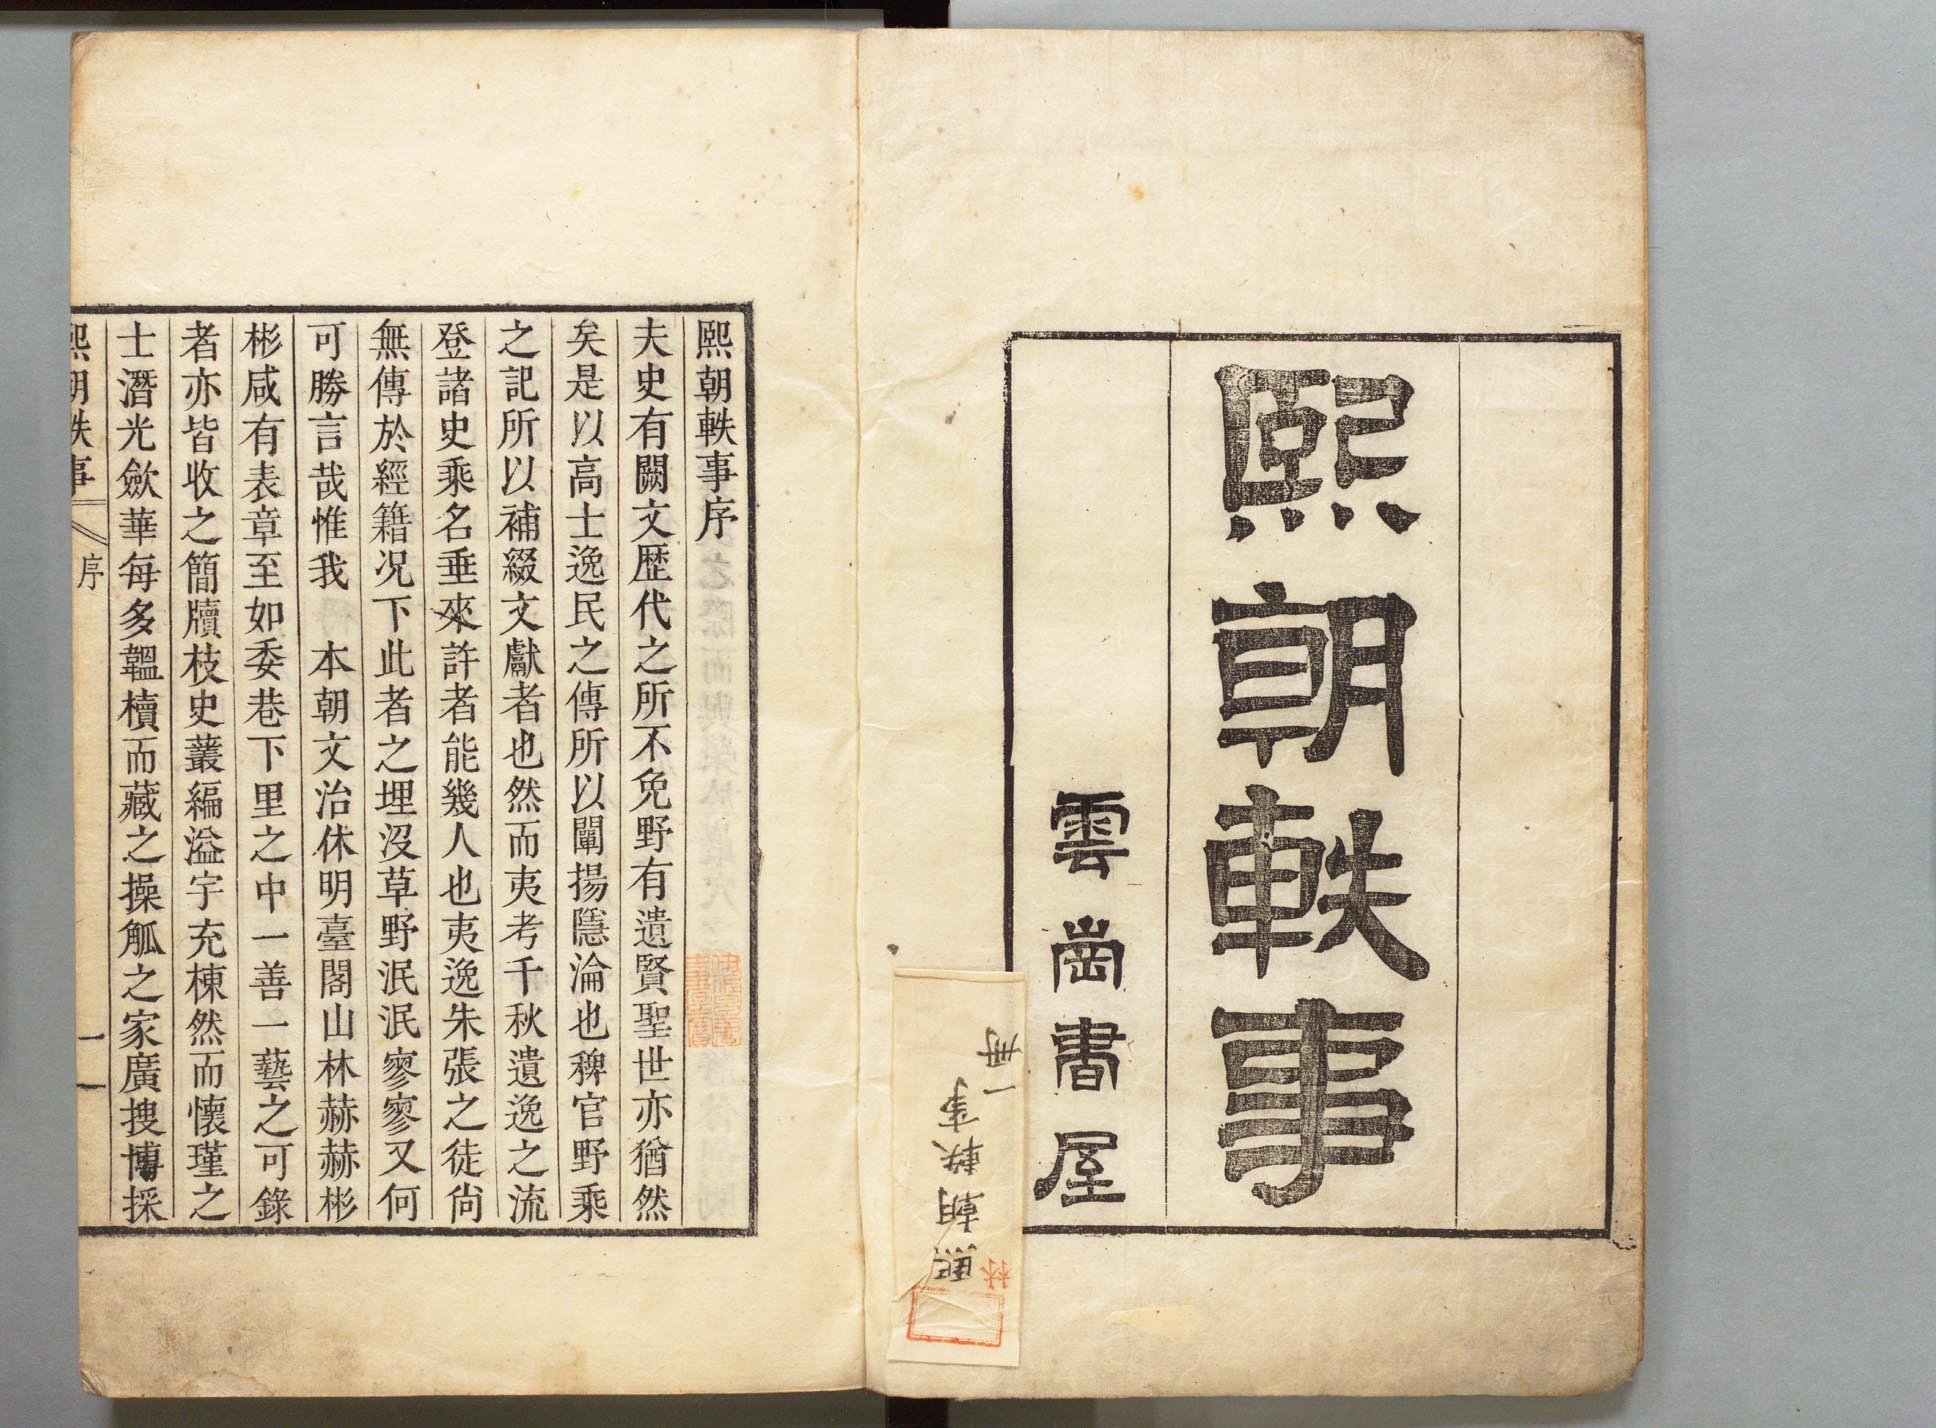 熙朝軼事
雲崗書屋
熙朝軼事
一冊
熙朝軼事序
夫史有闕文歷代之所不免野有遺賢聖世亦猶然
矣是以高士逸民之傳所以闡揚隱淪也稗官野乘
之記所以補綴文獻者也然而夷考千秋遺逸之流
登諸史乘名垂來許者能幾人也夷逸朱張之徒尙
無傳於經籍况下此者之埋沒草野泯泯寥寥又何
可勝言哉惟我　本朝文治休明臺閣山林赫赫彬
彬咸有表章至如委巷下里之中一善一藝之可錄
者亦皆收之簡牘枝史叢編溢宇充棟然而懷瑾之
士潛光歛華每多韞櫝而藏之操觚之家廣搜博採
熙朝軼事　序　一